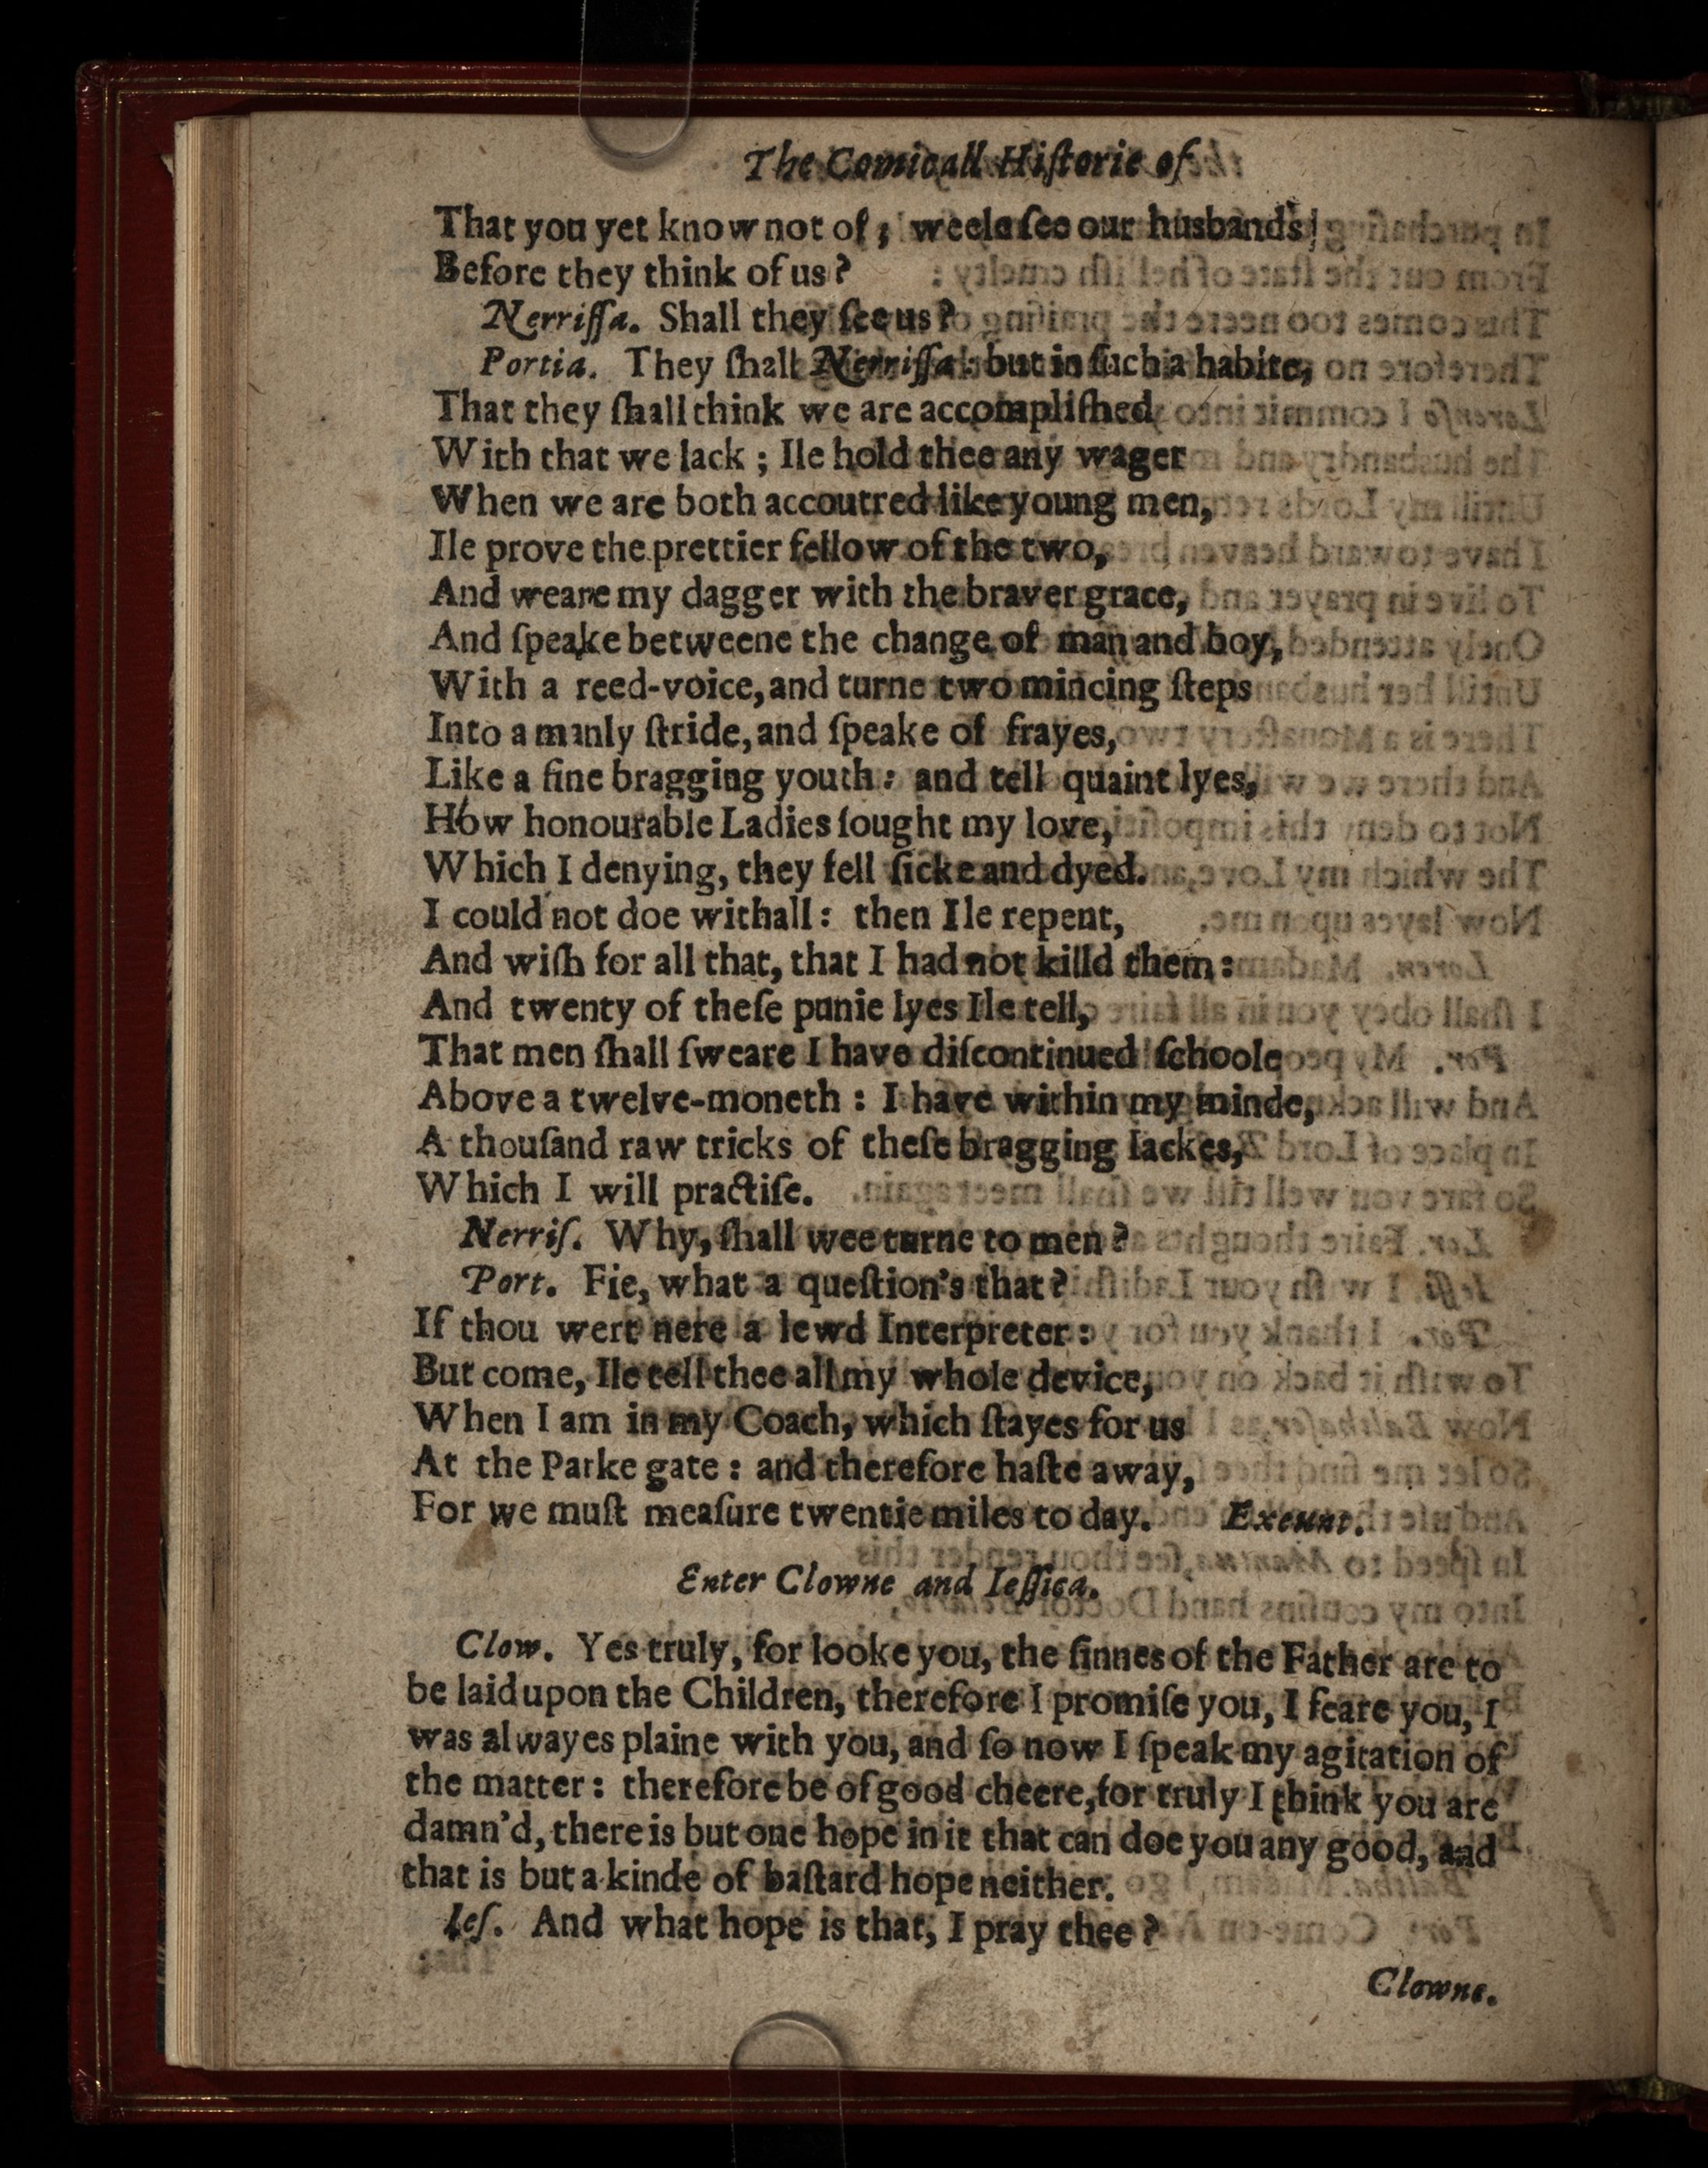 The Comicall Hiſtorie of
That you yet know not of; weele ſee our husbands
Before they think of us?
Nerriſſa. Shall they ſee us?
Portia. They ſhall Nerriſſa: but in ſuch a habite,
That they ſhall think we are accompliſhed
With that we lack; Ile hold thee any wager
When we are both accoutred like young men,
Ile prove the prettier fellow of the two,
And weare my dagger with the braver grace,
And ſpeake betweene the change of man and boy,
With a reed-voice, and turne two mincing ſteps
Into a manly ſtride, and ſpeake of frayes,
Like a fine bragging youth: and tell quaint lyes,
How honourable Ladies ſought my love,
Which I denying, they fell ſicke and dyed.
I could not doe withall: then Ile repent,
And wiſh for all that, that I had not killd them:
And twenty of theſe punie lyes Ile tell,
That men ſhall ſweare I have diſcontinued ſchoole
Above a twelve-moneth: I have within my minde,
A thouſand raw tricks of theſe bragging Iackes,
Which I will practiſe.
Nerriſ. Why, ſhall wee turne to men?
Port. Fie, what a queſtion's that?
If thou wert nere a lewd Interpreter:
But come, Ile tell thee all my whole device,
When I am in my Coach, which ſtayes for us
At the Parke gate: and therefore haſte away,
For we muſt meaſure twentie miles to day. Exeunt.
Enter Clowne and Ieſſica.
Clow. Yes truly, for looke you, the ſinnes of the Father are to
be laid upon the Children, therefore I promiſe you, I feare you, I
was alwayes plaine with you, and ſo now I ſpeak my agitation of
the matter: therefore be of good cheere, for truly I think you are
damn'd, there is but one hope in it that can doe you any good, and
that is but a kinde of baſtard hope neither.
Ieſ. And what hope is that, I pray thee?
Clowne.